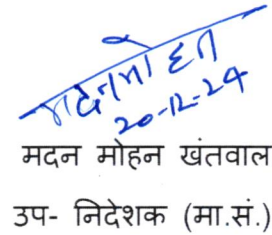 मदन मोहन
20-12-24
मदन मोहन खंतवाल
उप- निदेशक (मा.सं.)